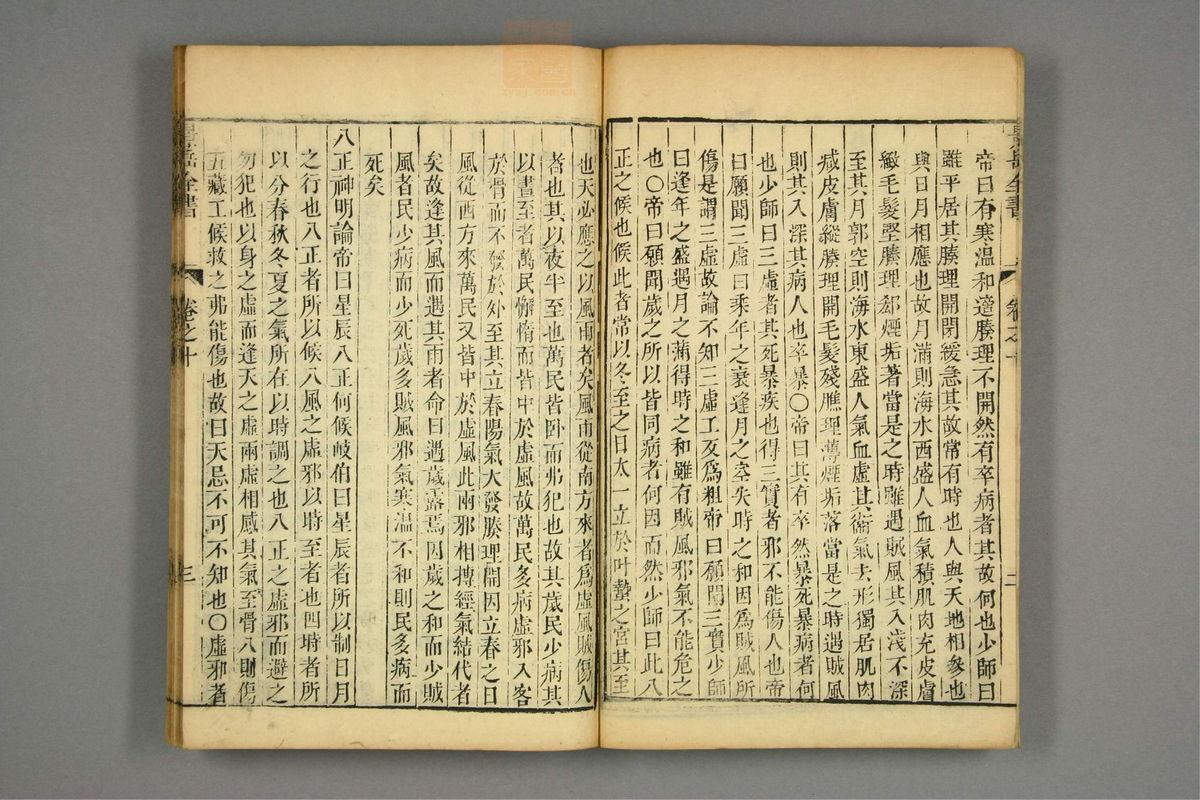 帝曰有寒温和適腠理不開然有卒病者其故何也少師曰
雖平居其腠理開閉緩急其故常有時也人與天地相參也
與日月相應也故月滿則海水西盛人血氣積肌肉充皮膚
緻毛髮堅腠理郄煙垢著當是之時雖遇賊風其入淺不深
至其月郭空則海水東盛人氣血虛其衞氣去形獨居肌肉
减皮膚縱腠理開毛髮殘膲理薄煙垢落當是之時遇賊風
則其入深其病人也卒暴○帝曰其有卒然暴死暴病者何
也少師曰三虛者其死暴疾也得三實者邪不能傷人也帝
曰願聞三虛曰乘年之衰逢月之空失時之和因為賊風所
傷是謂三虛故論不知三虛工反為粗帝曰願聞三實少師
曰逢年之盛遇月之滿得時之和雖有賊風邪氣不能危之
也○帝曰願聞歲之所以皆同病者何因而然少師曰此八
正之候也候此者常以冬至之日太一立於叶蟄之宮其至
也天必應之以風雨者矣風雨從南方來者為虛風賊傷人
者也其以夜半至也萬民皆卧而弗犯也故其歲民少病其
以晝至者萬民懈惰而皆中於虛風故萬民多病虛邪入客
於骨而不發於外至其立春陽氣大發腠理開因立春之日
風從西方來萬民又皆中於虛風此兩邪相搏經氣結代者
矣故逢其風而遇其雨者命曰遇歲露焉因歲之和而少賊
風者民少病而少死歲多賊風邪氣寒温不和則民多病而
死矣
八正神明論帝曰星辰八正何候岐伯曰星辰者所以制日月
之行也八正者所以候八風之虛邪以時至者也四時者所
以分春秋冬夏之氣所在以時調之也八正之虛邪而避之
勿犯也以身之虛而逢天之虛兩虛相感其氣至骨入則傷
五藏工候救之弗能傷也故曰天忌不可不知也○虛邪者
景岳全書
卷之十
二
景岳全書
卷之十
三